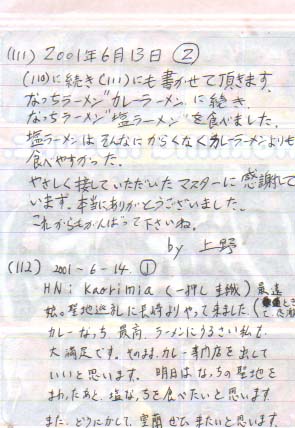 (111) 2001年6月13日 ②
(110)に続き(111)にも書かせて頂きます。
なっちラーメン"カレーラーメン"に続き、
なっちラーメン"塩ラーメン"を食べました。
塩ラーメンはそんなにからくなくカレーラーメンよりも
食べやすかった。
やさしく接していただいたマスターに感謝して
います。本当にありがとうございました。
これからもがんばって下さいね。
by 上野
(112) 2001-6-14. ①
HN: Kaorimia (一押し 圭織) 最遠
娘。聖地巡礼に長崎よりやって来ました
カレーなっち、最高、ラーメンにうるさい私も
大満足です。そのままカレー専門店を出して
いいと思います。明日はなっちの聖地を
まわったあと、塩なっちを食べたいと思います
また、どうにかして、室蘭ぜひ来たいと思います。